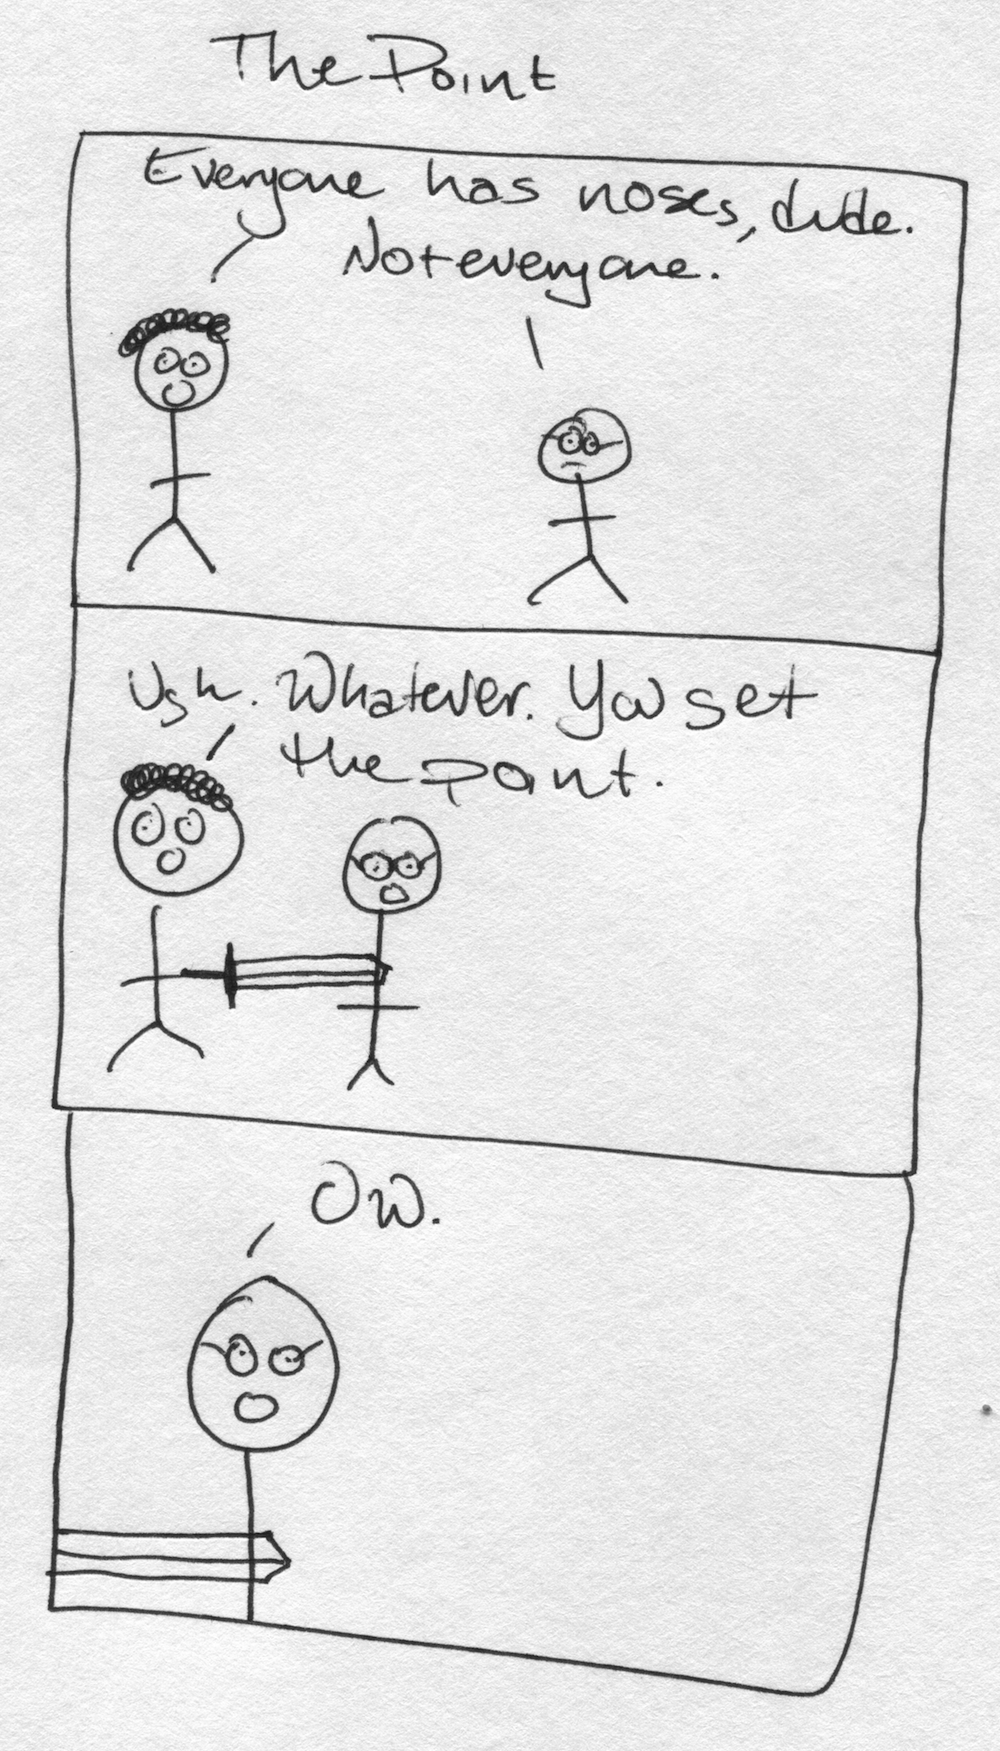 The Point
Everyone has noses, dude.
Not everyone.
Ugh. Whatever. You get
the point.
Ow.